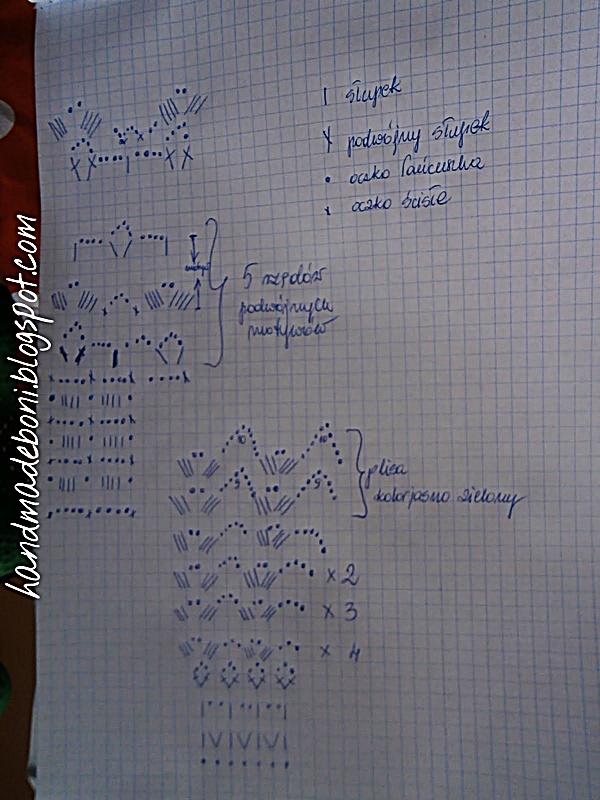 słupek
podwójny słupek
oczko łańcuszka
oczko ścisłe
5 rzędów
podwójnych
motywów
10 10
plisa
5 5
kolor jasno zielony
5
x 2
x 3
x 4
handmadeboni.blogspot.com